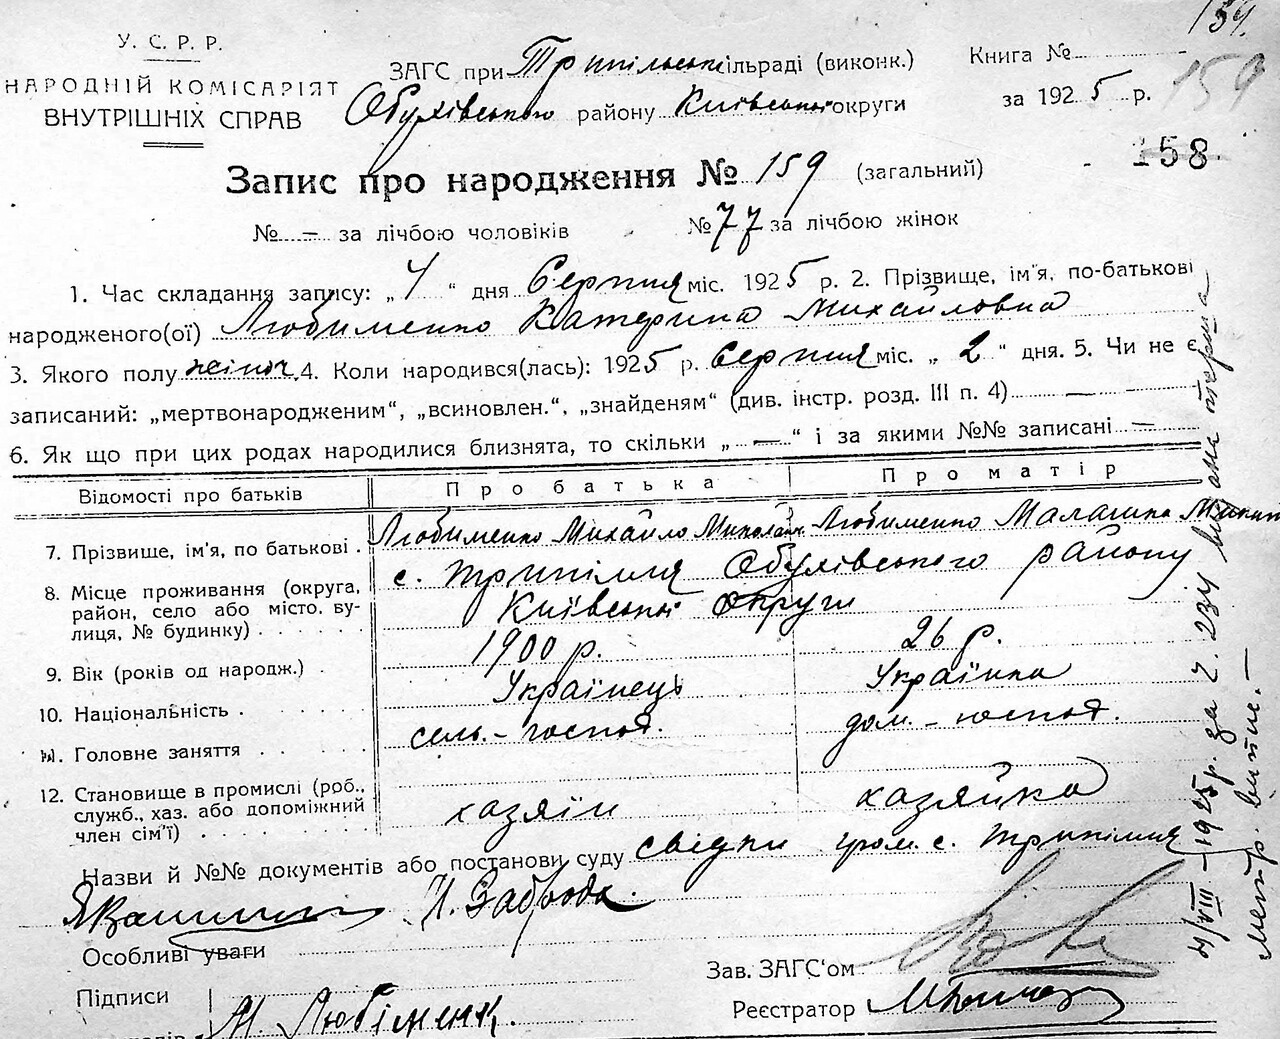 134.
У. С. Р. Р.
НАРОДНІЙ КОМІСАРІЯТ
ВНУТРІШНІХ СПРАВ
ЗАГС при Трипільські сільраді (виконк.)
Обухівського району Київської округи
Книга №
за 1925 р.
159
158
Запис про народження № 159 (загальний)
№ — за лічбою чоловіків № 77 за лічбою жінок
1. Час складання запису: „4“ дня Серпня міс. 1925 р. 2. Прізвище, ім'я, по-батькові
народженого(ої) Любименко Катерина Михайловна
3. Якого полу жіноч. 4. Коли народився(лась): 1925 р. Серпня міс. „2“ дня. 5. Чи не є
записаний: „мертвонародженим“, „всиновлен.“, „знайденям“ (див. інстр. розд. III п. 4) —
6. Як що при цих родах народилися близнята, то скільки „—“ і за якими №№ записані —
Відомості про батьків Про батька Про матір
7. Прізвище, ім'я, по батькові . Любименко Михайло Миколаїв Любименко Малашка Микит
8. Місце проживання (округа, район, село або місто. вулиця, № будинку) с. Трипілля Обухівського району
Київської округи
9. Вік (років од народж.) . 1900 р. 26 р.
10. Національність . Українець Українка
11. Головне заняття сель.-господ. дом.-господ.
12. Становище в промислі (роб.,
служб., хаз. або допоміжний
член сім'ї) хазяїн хазяйка
Назви й №№ документів або постанови суду свідки гром. с. Трипілля
Я Ваш Н. Заброда.
Особливі уваги
Зав. ЗАГС'ом
Підписи
Реєстратор
М. Любіменк.
4/VIII – 1925 р. за ч. 234 видана перша
метр. випис. —